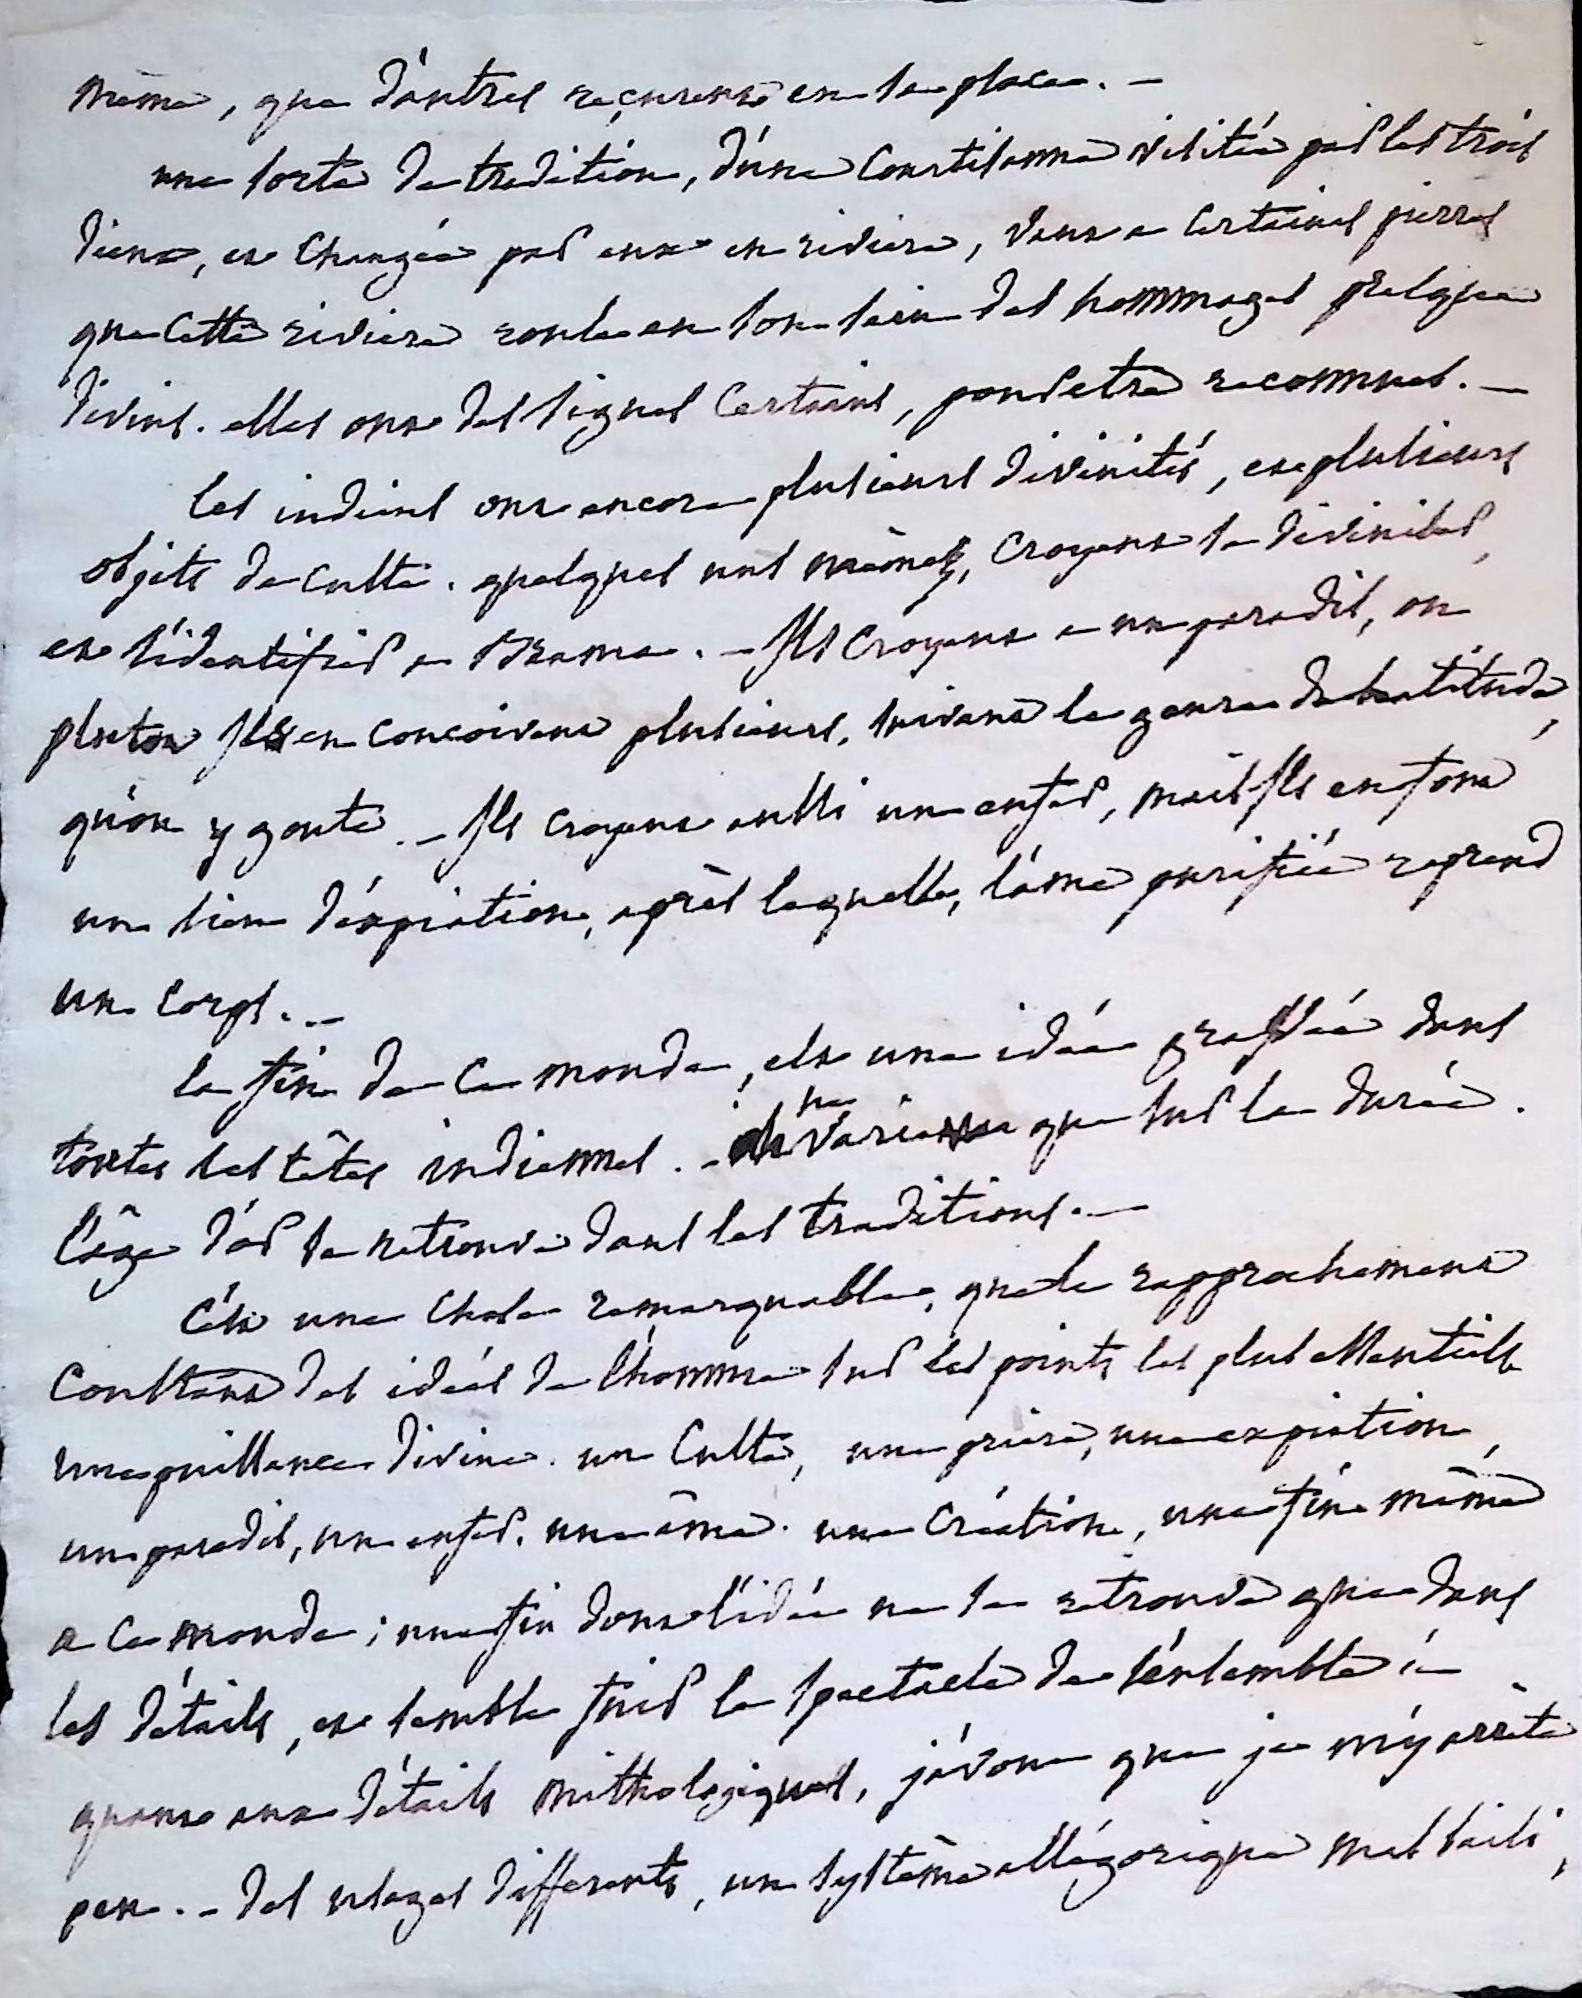 même, que d'autres reçurent en sa place. –
une sorte de tradition, d'une Courtisanne visitée par les trois
dieux, et changée par eux en riviere, vaut a certaines pierres
que cette riviere roule en son sein des hommages presque
divins. elles ont des signes certains, pour etre reconnues. –
les indiens ont encore plusieurs divinités, et plusieurs
objets de culte. quelques uns mêmes, croyent se diviniser,
et s'identifier a Brama. – Ils croyent a un paradis, ou
plutot Ils en concoivent plusieurs, suivant le genre de beatitude,
qu'on y goute. – Ils croyent aussi un enfer, mais Ils en font
un lieu d'expiation, après laquelle, l'âme purifiée reprend
un corps. –
la fin de ce monde, est une idée gravée dans
toutes les têtes indiennes. – ne varie que sur la durée.
l'âge d'or se retrouve dans les traditions. –
C'est une chose remarquable, que le rapprochement
constant des idées de l'homme sur les points les plus essentiels
une puissance divine. un culte, une priere, une expiation,
un paradis, un enfer. une âme. une création, une fin même
a ce monde ; une fin dont l'idée ne se retrouve que dans
les détails, et semble fuir le spectacle de l'ensemble
quant aux détails mithologiques, j'avoue que je m'y arrête
peu. – des usages differents, un système allégorique mal saisi,